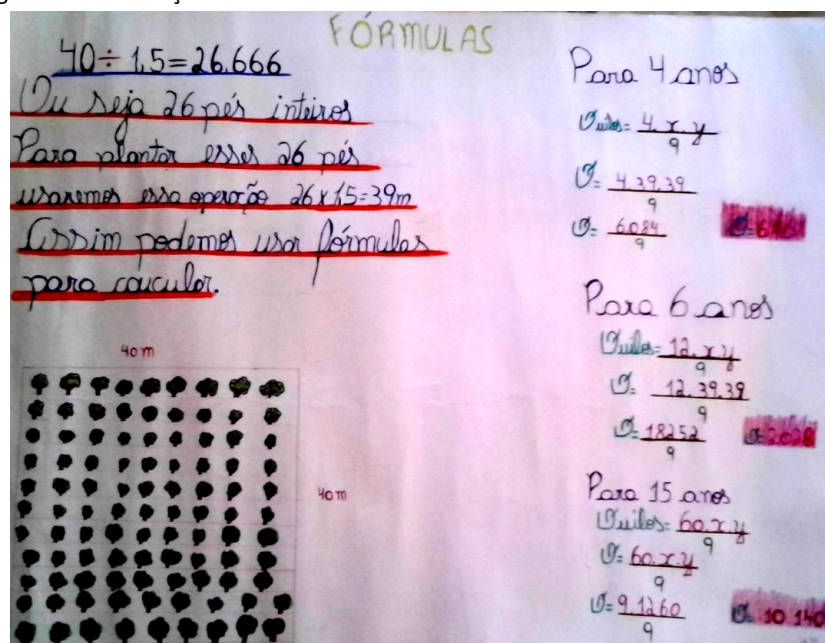 FÓRMULAS
40÷1,5=26.666
Ou seja 26 pés inteiros
Para plantar esses 26 pés
usaremos essa operação 26x1,5=39m
Assim podemos usar fórmulas
para calcular.
40m
40m
Para 4 anos
Quilos= 4.x.y
9
Q= 4.39.39
9
Q= 6084
9
Para 6 anos
Quilos= 12.x.y
9
Q= 12.39.39
9
Q= 18252
9
Q=2.028
Para 15 anos
Quilos= 60.x.y
9
Q= 60.x.y
9
Q= 9.1260
9
Q= 10.140